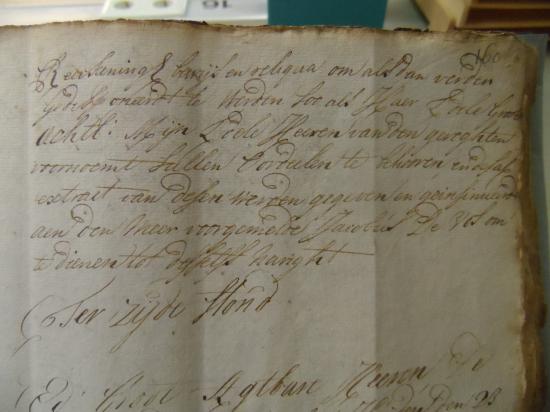 160
Reekening bewijs en reliqua om als dan verder
te werden soo als Haer Edele Groot
achtb: Mijn Edele Heeren van den gereghten
voornoemt sullen oordelen te behooren ende sal
extract van desen werden gegeven en geinsinueert
aen den Heer voorgemelde Jacobus De Vos om
te dienen tot desselfs
Ter zijde stond
Heeren
23